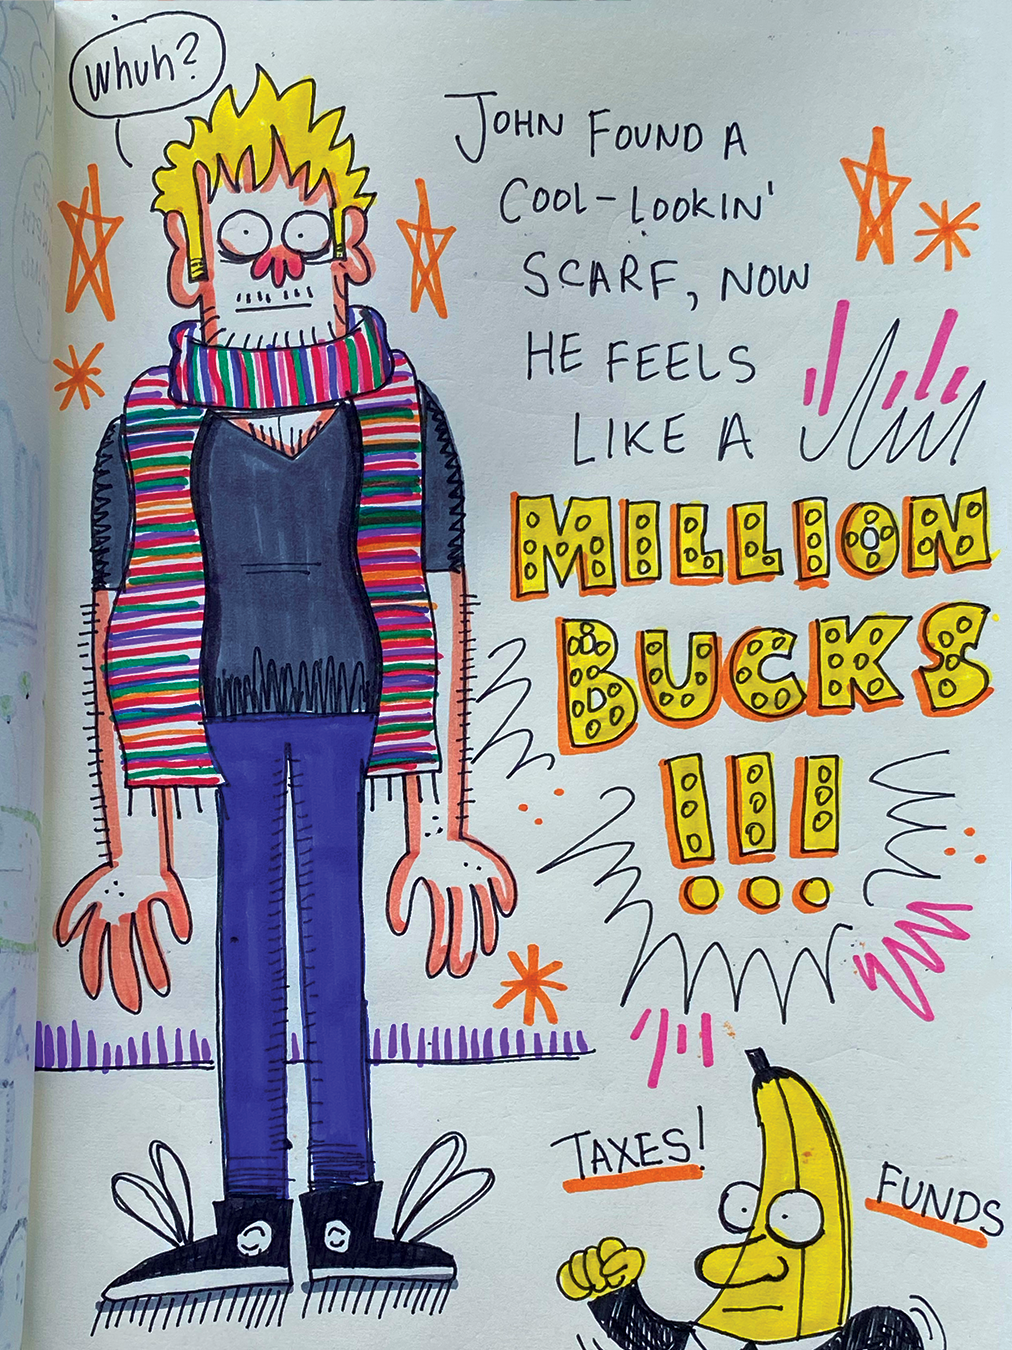 Whuh?
JOHN FOUND A
COOL-LOOKIN'
SCARF, NOW
HE FEELS
LIKE A
MILLION
BUCKS
!!!
TAXES!
FUNDS